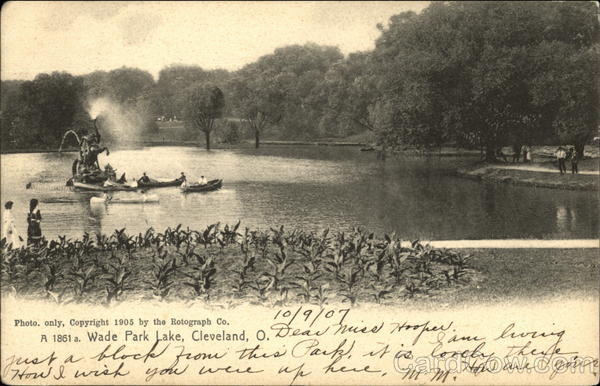 10/9/07
Photo. only, Copyright 1905 by the Rotograph Co.
A 1861 a. Wade Park Lake, Cleveland, O.
Dear Miss Hooper I am living
just a block from this Park, it is lovely there
How I wish you were up here. How are you?
M. M.
CardCow.com